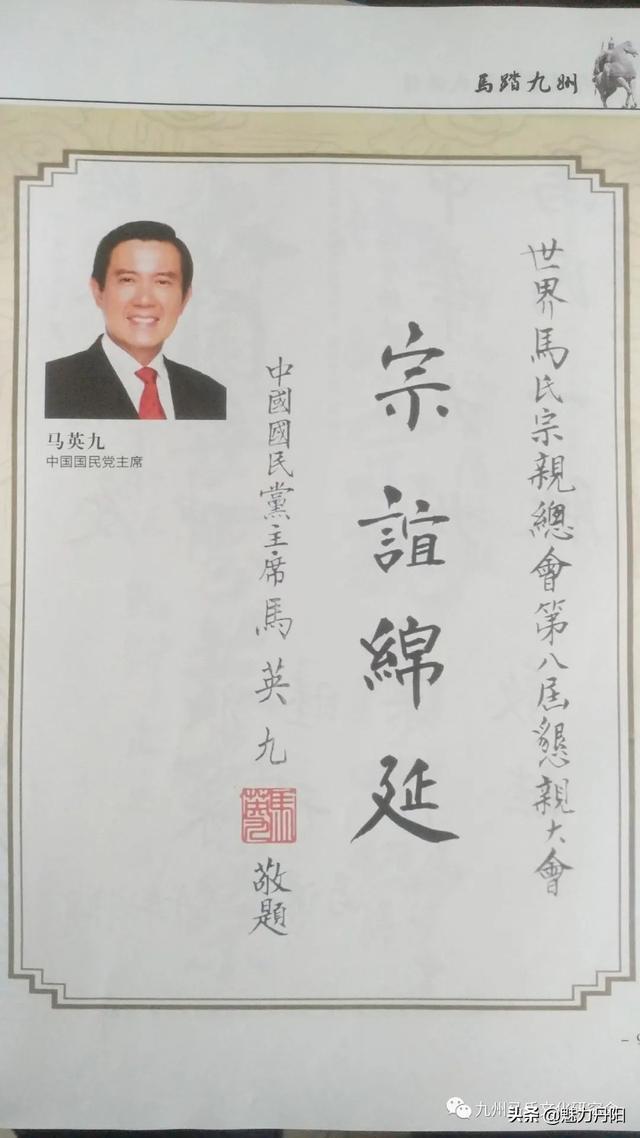 馬踏九州
世界馬氏宗親總會第八屆懇親大會
宗誼綿延
中國國民黨主席馬英九
馬英九
敬題
马英九
中国国民党主席
九州马氏文化研究会
头条 @魅力丹阳